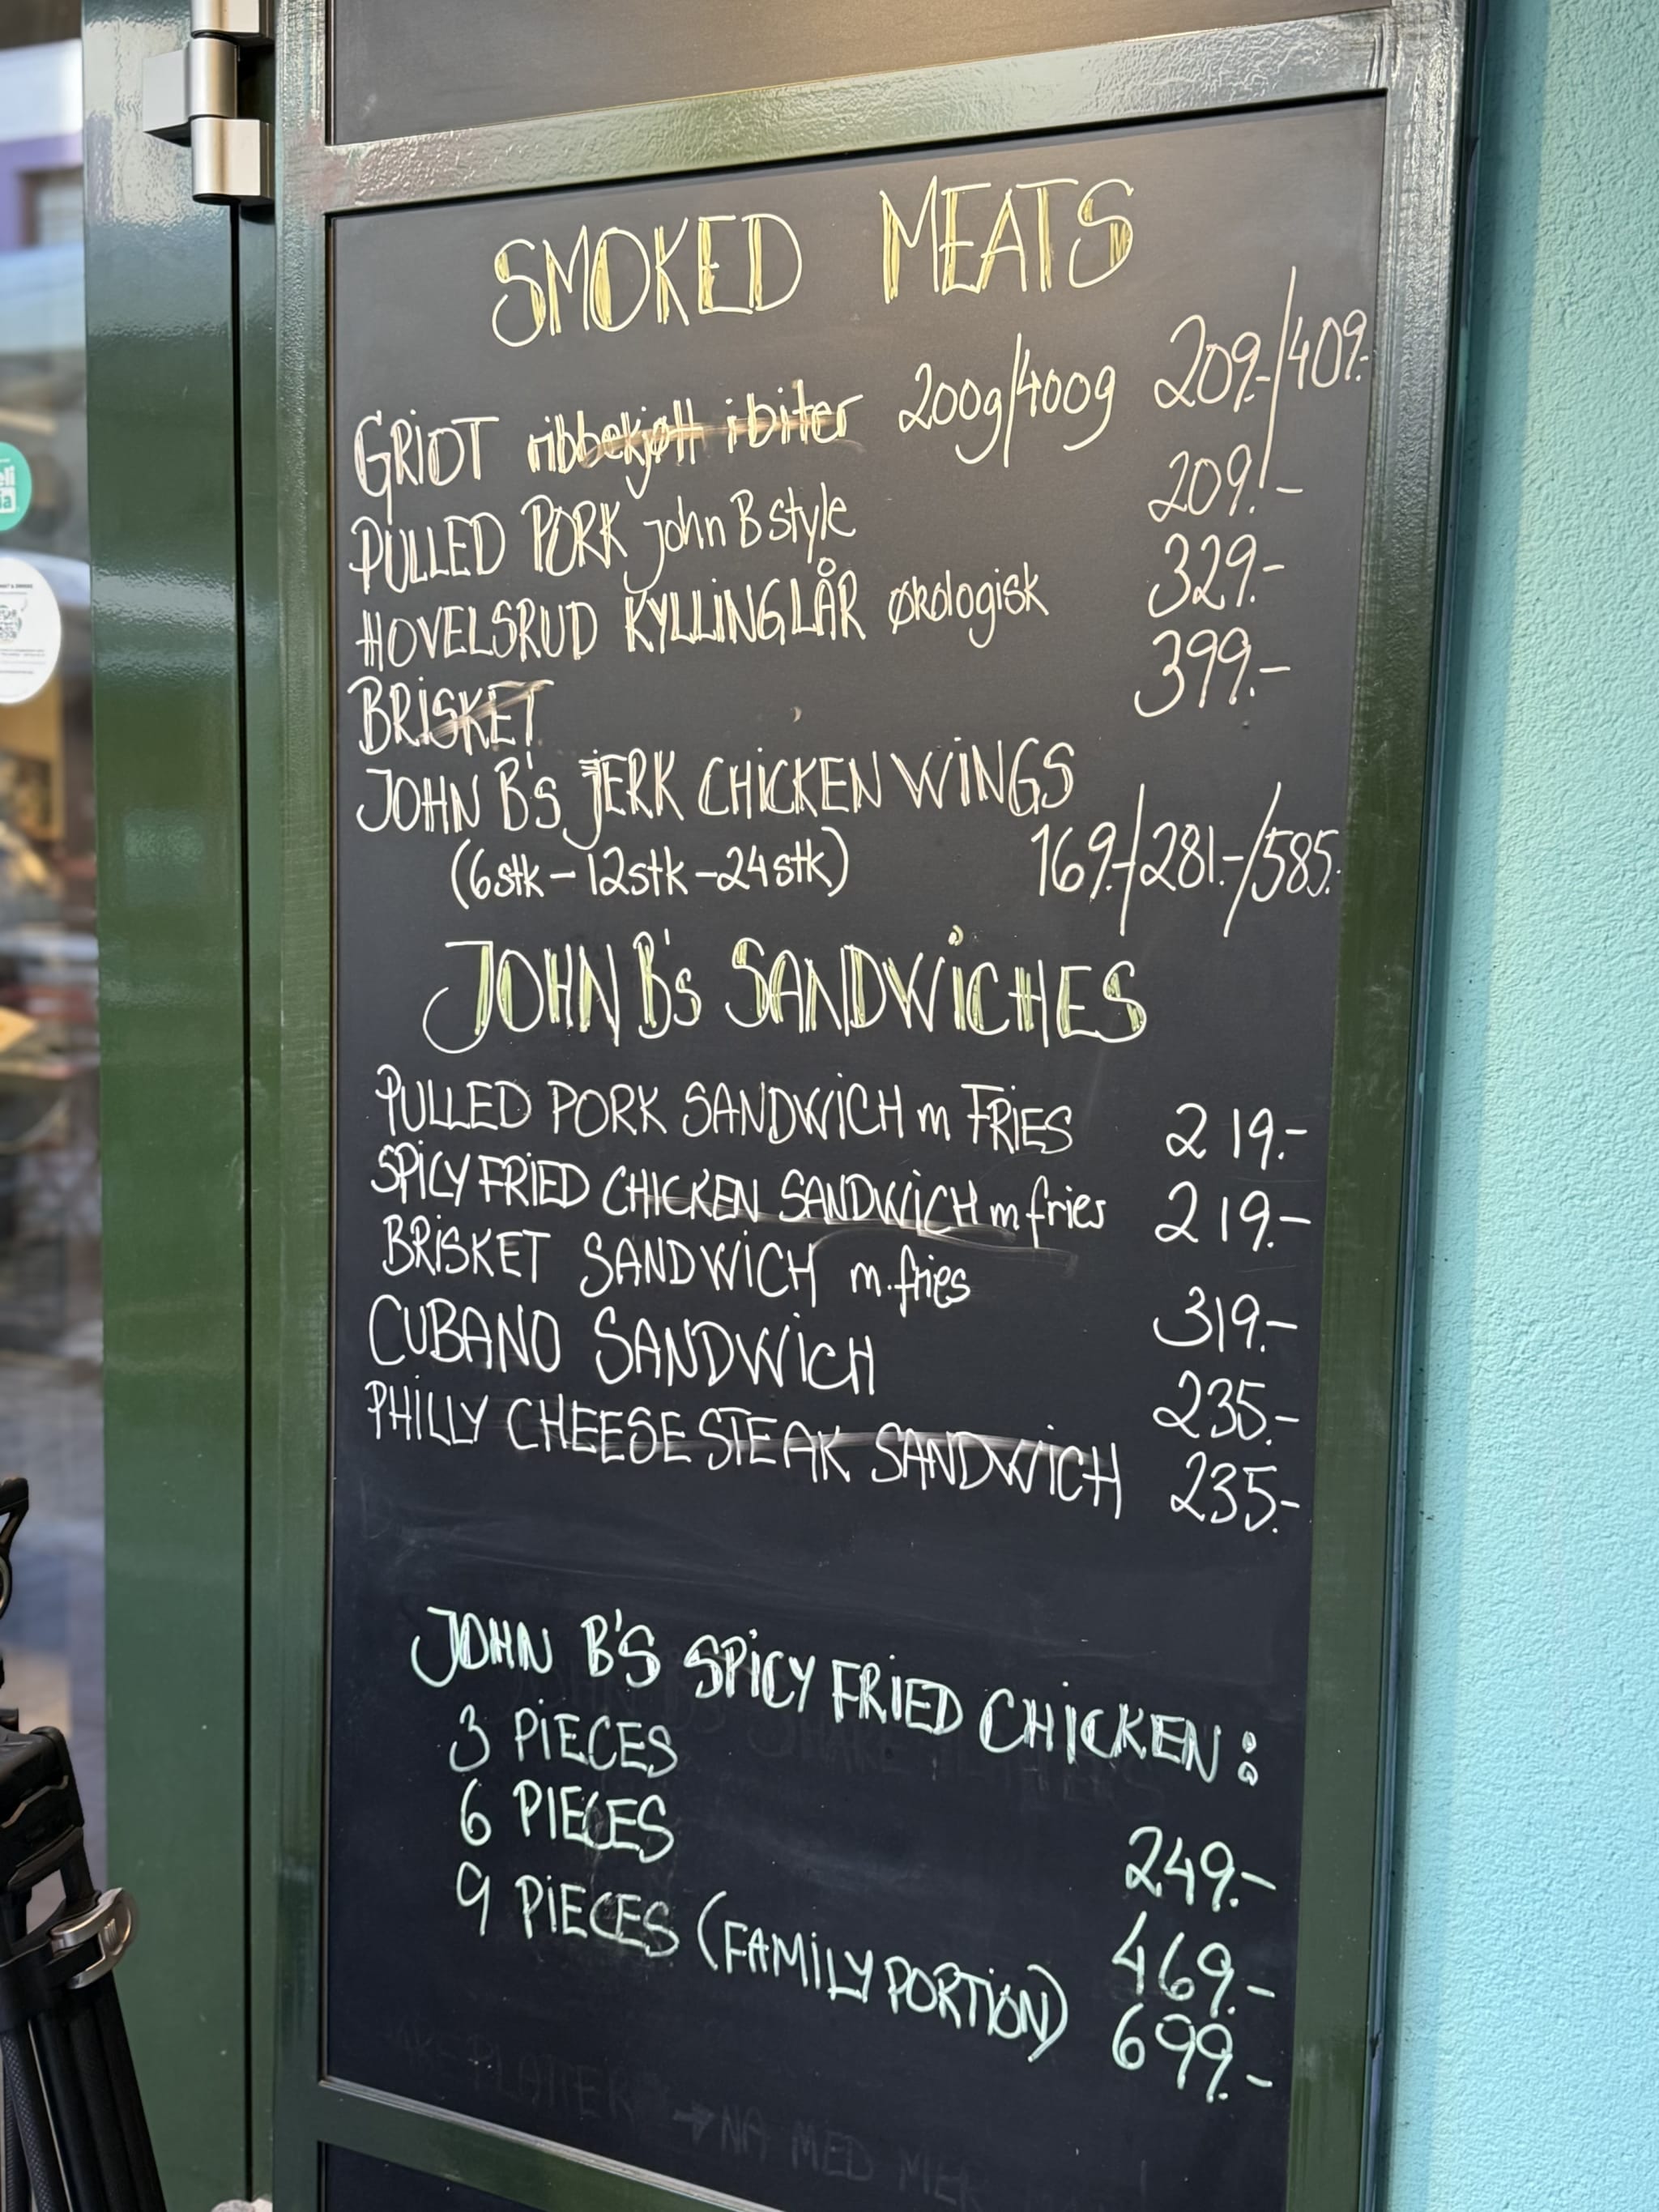 SMOKED MEATS
GRIOT ribbekjøtt i biter 200g/400g 209.-/409.-
PULLED PORK John B style 209.-
HOVELSRUD KYLLINGLÅR økologisk 329.-
BRISKET 399.-
JOHN B's JERK CHICKEN WINGS
(6stk-12stk-24stk) 169.-/281.-/585.-
JOHN B's SANDWICHES
PULLED PORK SANDWICH m FRIES 219.-
SPICY FRIED CHICKEN SANDWICH m fries 219.-
BRISKET SANDWICH m. fries 319.-
CUBANO SANDWICH 235.-
PHILLY CHEESE STEAK SANDWICH 235.-
JOHN B'S SPICY FRIED CHICKEN:
3 PIECES 249.-
6 PIECES 469.-
9 PIECES (FAMILY PORTION) 699.-
PLATTER → NÅ MED